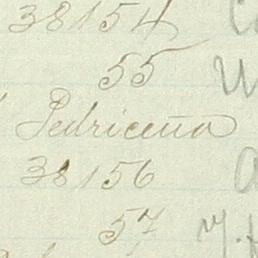 38154
55
Pedriceña
38156
57